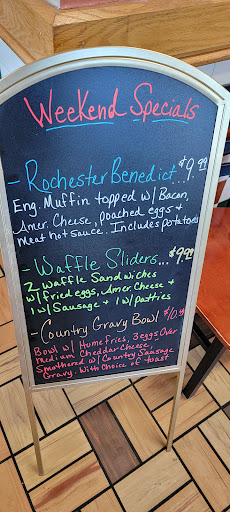 Weekend Specials
- Rochester Benedict... $9.99
Eng. Muffin topped w/ Bacon,
Amer. Cheese, poached eggs +
meat hot sauce. Includes potatoes
- Waffle Sliders... $9.99
2 Waffle Sandwiches
w/ fried eggs, Amer. Cheese +
1 w/ Sausage + 1 w/ patties
- Country Gravy Bowl $10.99
Bowl w/ Homefries, 3 eggs Over
medium Cheddar Cheese,
Smothered w/ Country Sausage
Gravy. With Choice of toast